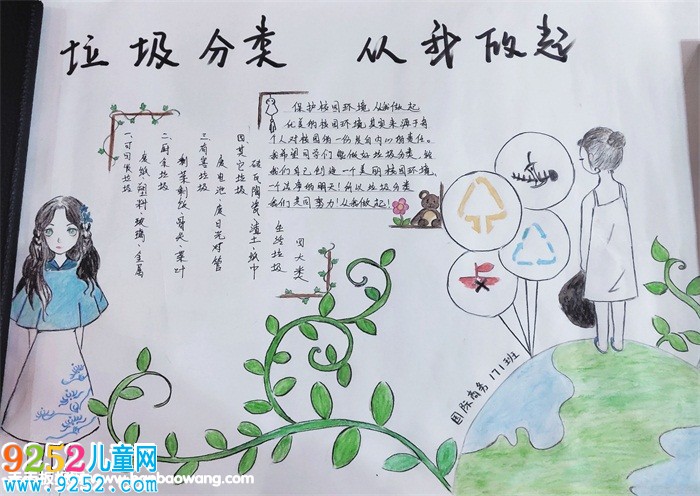 垃圾分类 从我做起
保护校园环境,从我做起
优美的校园环境其实来源于每
个人对校园的一份发自内心的责任。
我希望同学们能做好垃圾分类,给
我们自己创造一个美丽校园环境,
一个洁净的明天!所以垃圾分类
我们是同努力!从我做起!
四大类
生活垃圾
一、可回收垃圾
废纸、塑料、玻璃、金属
二、厨余垃圾
剩菜剩饭、骨头、菜叶
三、有害垃圾
废电池、废日光灯管
四、其它垃圾
砖瓦陶瓷、渣土、纸巾
国际商务171班
9252儿童网
www.9252.com